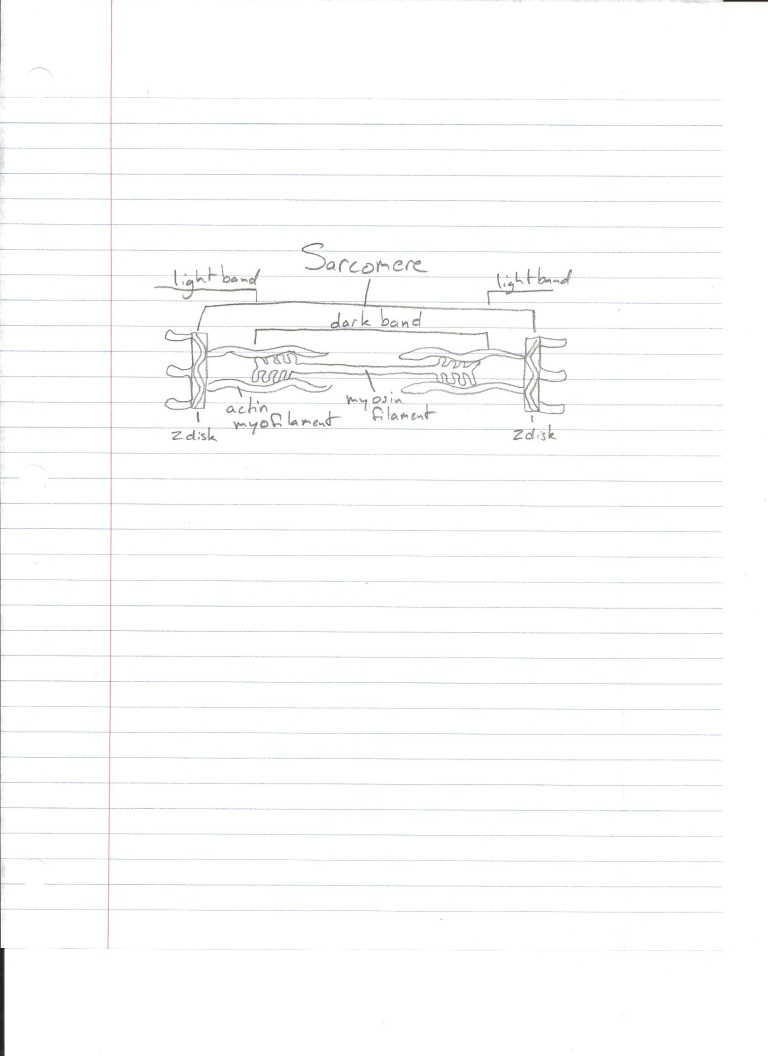 Sarcomere
light band
light band
dark band
actin
myofilament
myosin
filament
Z disk
Z disk